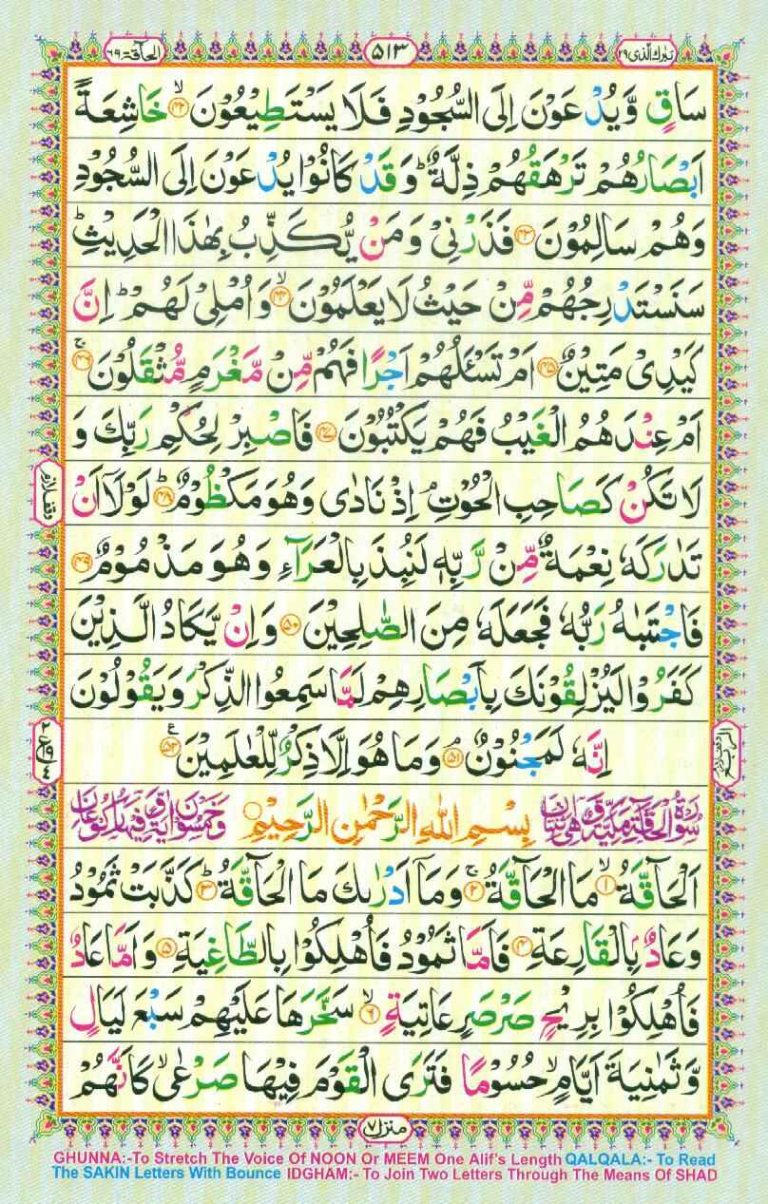 تبٰرك الذی ٢٩
٥١٣
الحآقة ٦٩
سَاقٍ وَّیُدْعَوْنَ اِلَی السُّجُوْدِ فَلَا یَسْتَطِیْعُوْنَ ۙ﴿۴۲﴾ خَاشِعَةً
اَبْصَارُهُمْ تَرْهَقُهُمْ ذِلَّةٌ ؕ وَ قَدْ كَانُوْا یُدْعَوْنَ اِلَی السُّجُوْدِ
وَهُمْ سَالِمُوْنَ ﴿۴۳﴾ فَذَرْنِیْ وَ مَنْ یُّكَذِّبُ بِهٰذَا الْحَدِیْثِ ؕ
سَنَسْتَدْرِجُهُمْ مِّنْ حَیْثُ لَا یَعْلَمُوْنَ ۙ﴿۴۴﴾ وَ اُمْلِیْ لَهُمْ ؕ اِنَّ
كَیْدِیْ مَتِیْنٌ ﴿۴۵﴾ اَمْ تَسْـَٔلُهُمْ اَجْرًا فَهُمْ مِّنْ مَّغْرَمٍ مُّثْقَلُوْنَ ۚ﴿۴۶﴾
اَمْ عِنْدَهُمُ الْغَیْبُ فَهُمْ یَكْتُبُوْنَ ﴿۴۷﴾ فَاصْبِرْ لِحُكْمِ رَبِّكَ وَ
لَا تَكُنْ كَصَاحِبِ الْحُوْتِ ۘ اِذْ نَادٰی وَهُوَ مَكْظُوْمٌ ؕ﴿۴۸﴾ لَوْلَاۤ اَنْ
تَدٰرَكَهٗ نِعْمَةٌ مِّنْ رَّبِّهٖ لَنُبِذَ بِالْعَرَآءِ وَ هُوَ مَذْمُوْمٌ ﴿۴۹﴾
فَاجْتَبٰىهُ رَبُّهٗ فَجَعَلَهٗ مِنَ الصّٰلِحِیْنَ ﴿۵۰﴾ وَ اِنْ یَّكَادُ الَّذِیْنَ
كَفَرُوْا لَیُزْلِقُوْنَكَ بِاَبْصَارِهِمْ لَمَّا سَمِعُوا الذِّكْرَ وَ یَقُوْلُوْنَ
اِنَّهٗ لَمَجْنُوْنٌ ۘ﴿۵۱﴾ وَ مَا هُوَ اِلَّا ذِكْرٌ لِّلْعٰلَمِیْنَ ﴿۵۲﴾ ع
بِسْمِ اللّٰهِ الرَّحْمٰنِ الرَّحِیْمِ
اَلْحَآقَّةُ ۙ﴿۱﴾ مَا الْحَآقَّةُ ۚ﴿۲﴾ وَ مَاۤ اَدْرٰىكَ مَا الْحَآقَّةُ ؕ﴿۳﴾ كَذَّبَتْ ثَمُوْدُ
وَ عَادٌۢ بِالْقَارِعَةِ ﴿۴﴾ فَاَمَّا ثَمُوْدُ فَاُهْلِكُوْا بِالطَّاغِیَةِ ﴿۵﴾ وَ اَمَّا عَادٌ
فَاُهْلِكُوْا بِرِیْحٍ صَرْصَرٍ عَاتِیَةٍ ۙ﴿۶﴾ سَخَّرَهَا عَلَیْهِمْ سَبْعَ لَیَالٍ
وَّ ثَمٰنِیَةَ اَیَّامٍ ۙ حُسُوْمًا فَتَرَی الْقَوْمَ فِیْهَا صَرْعٰی ۙ كَاَنَّهُمْ
منزل ٧
GHUNNA:-To Stretch The Voice Of NOON Or MEEM One Alif's Length QALQALA:- To Read
The SAKIN Letters With Bounce IDGHAM:- To Join Two Letters Through The Means Of SHAD